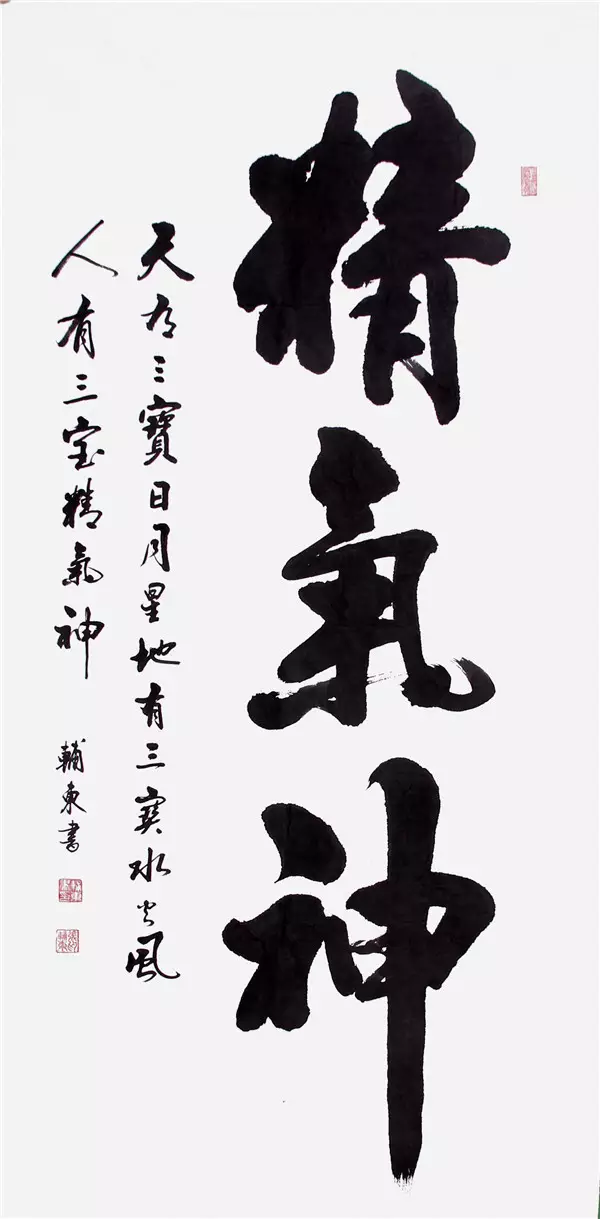 精氣神
天有三寶日月星地有三寳水火風
人有三宝精氣神
輔東書